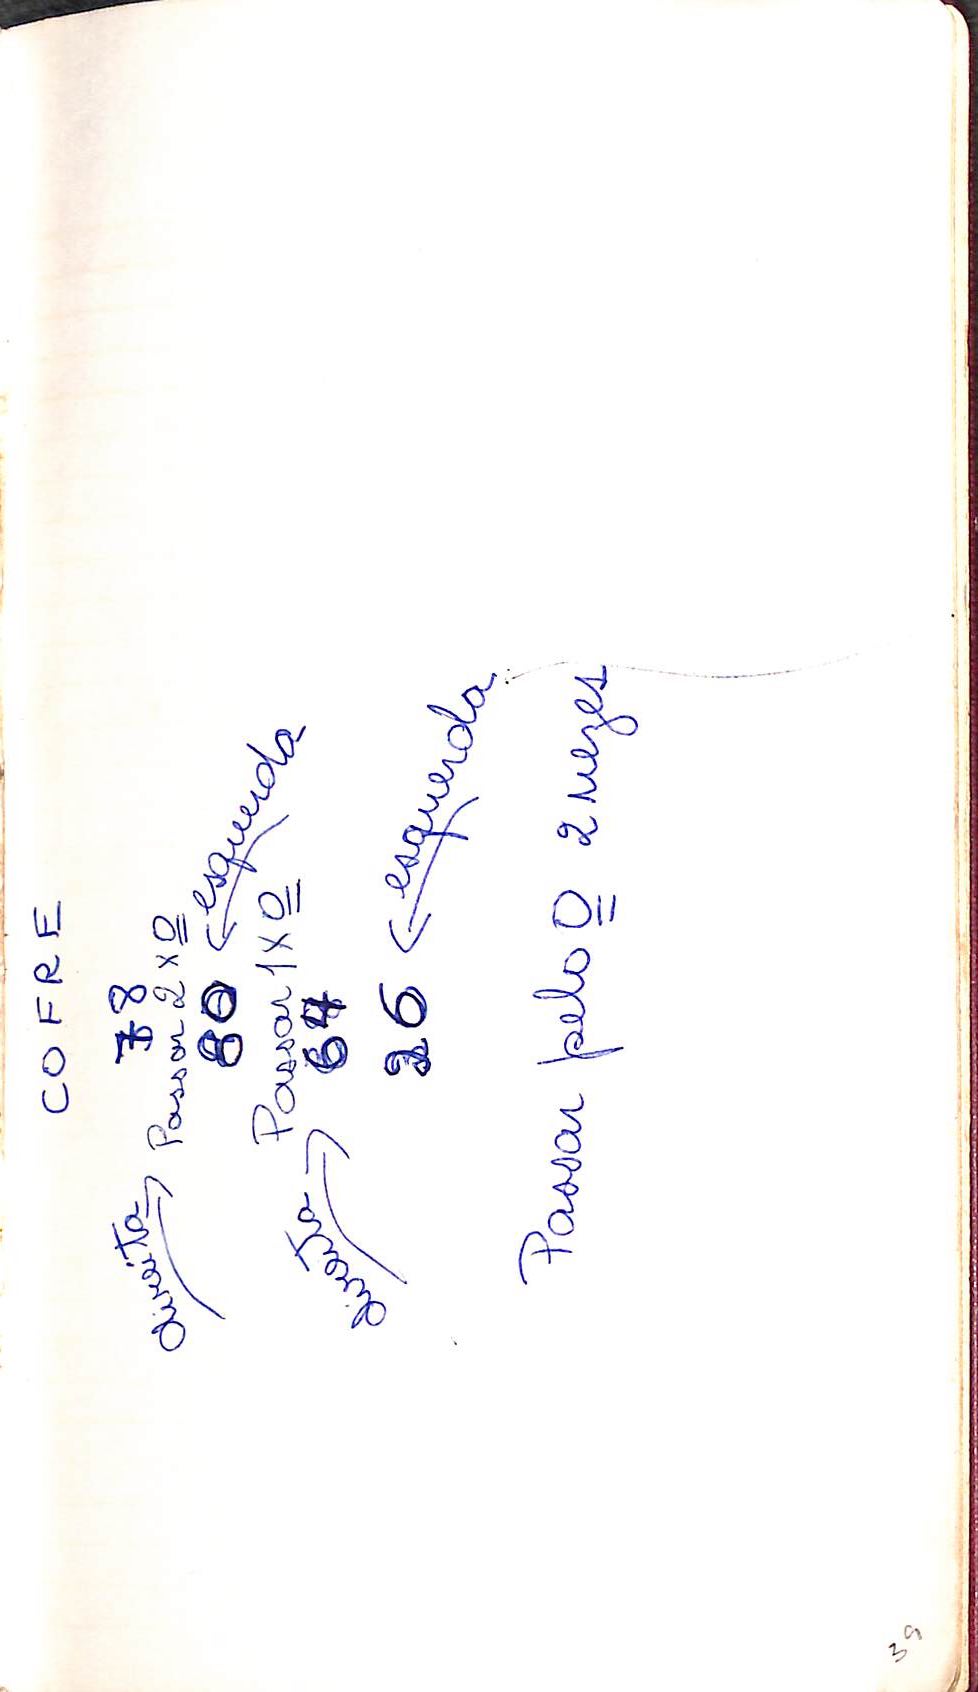 COFRE
direita → 78
Passar 2 x 0
80 ← esquerda
Passar 1 x 0
direita → 64
26 ← esquerda
Passar pelo 0 2 vezes